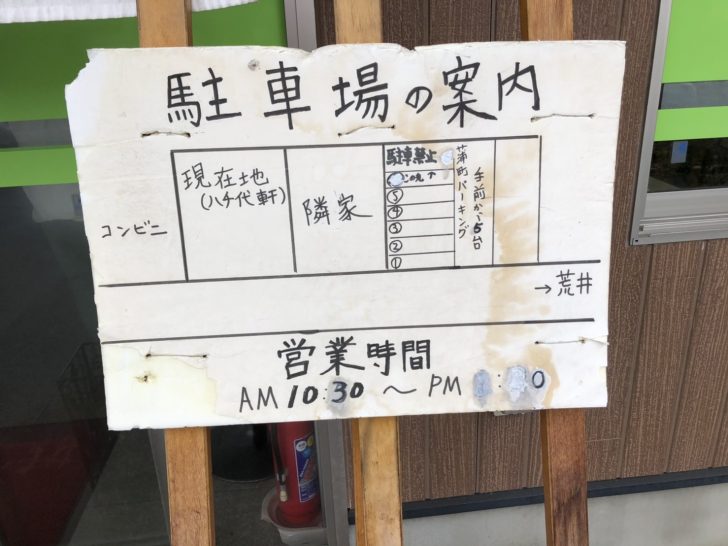 駐車場の案内
コンビニ
現在地
(八千代軒)
隣家
駐車禁止
⑤
④
③
②
①
蒲町パーキング
手前から5台
→荒井
営業時間
AM 10:30 〜 PM